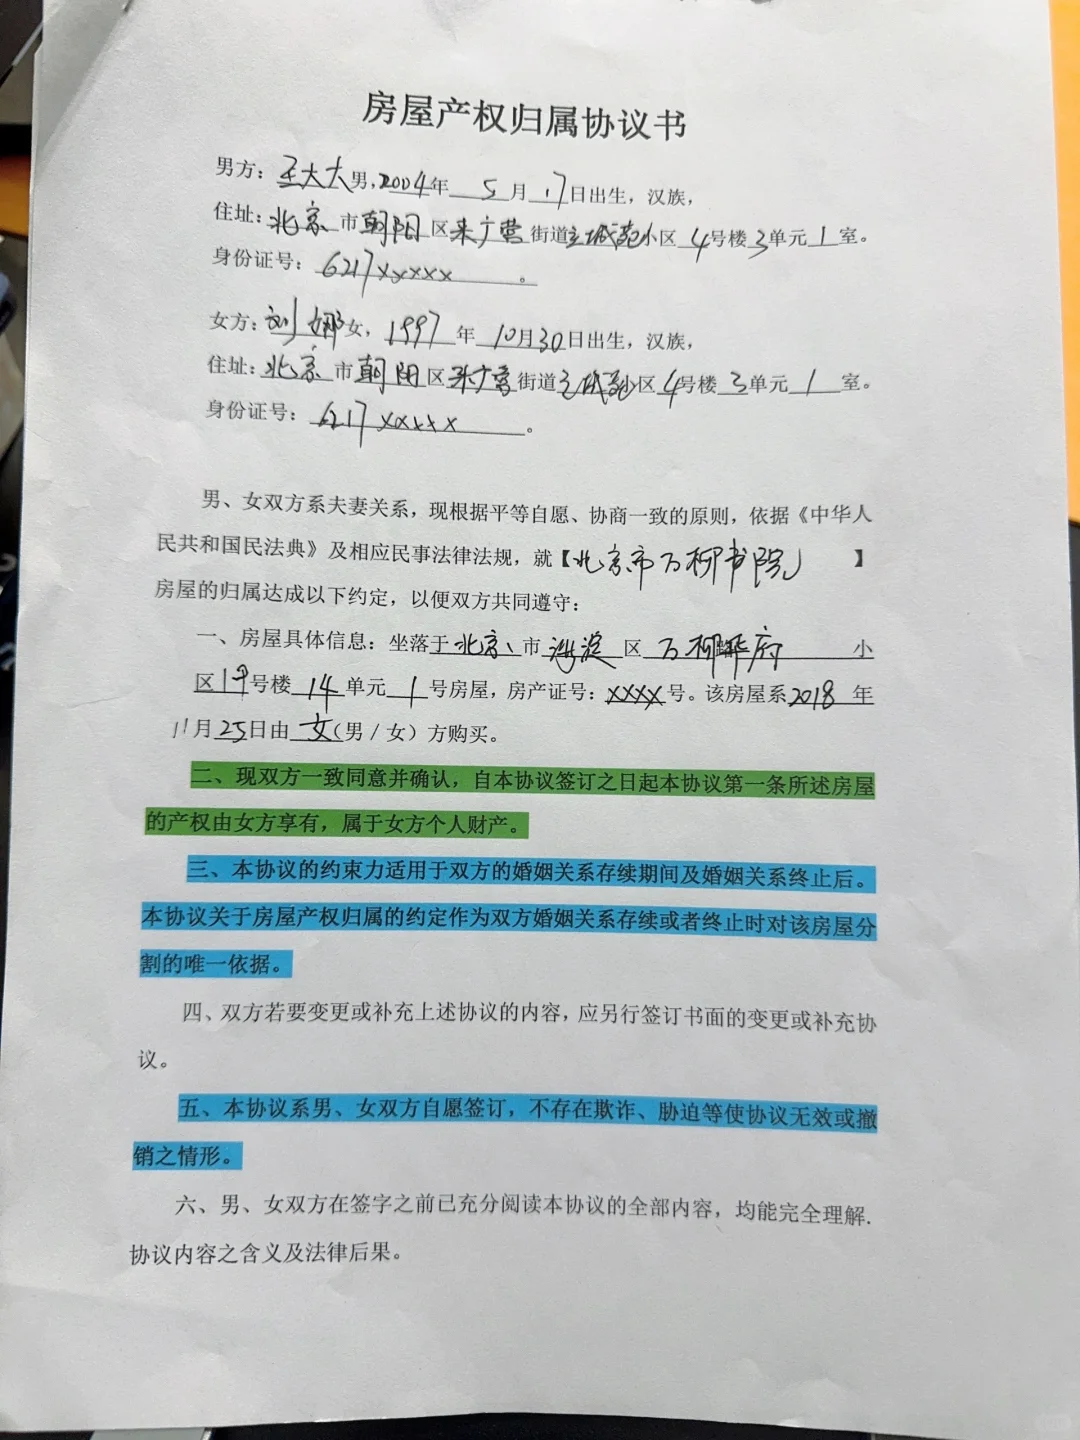 房屋产权归属协议书
男方：王大大男，2004年 5月17日出生，汉族，
住址：北京市朝阳区来广营街道立城苑小区 4号楼3单元1室。
身份证号：6217xxxxx。
女方：刘娜女，1997年10月30日出生，汉族，
住址：北京市朝阳区来广营街道立城苑小区4号楼3单元1室。
身份证号：6217xxxxx。
男、女双方系夫妻关系，现根据平等自愿、协商一致的原则，依据《中华人
民共和国民法典》及相应民事法律法规，就【北京市万柳书院】
房屋的归属达成以下约定，以便双方共同遵守：
一、房屋具体信息：坐落于北京市海淀区万柳华府小
区19号楼14单元1号房屋，房产证号：xxxx号。该房屋系2018年
11月25日由女（男/女）方购买。
二、现双方一致同意并确认，自本协议签订之日起本协议第一条所述房屋
的产权由女方享有，属于女方个人财产。
三、本协议的约束力适用于双方的婚姻关系存续期间及婚姻关系终止后。
本协议关于房屋产权归属的约定作为双方婚姻关系存续或者终止时对该房屋分
割的唯一依据。
四、双方若要变更或补充上述协议的内容，应另行签订书面的变更或补充协
议。
五、本协议系男、女双方自愿签订，不存在欺诈、胁迫等使协议无效或撤
销之情形。
六、男、女双方在签字之前已充分阅读本协议的全部内容，均能完全理解.
协议内容之含义及法律后果。